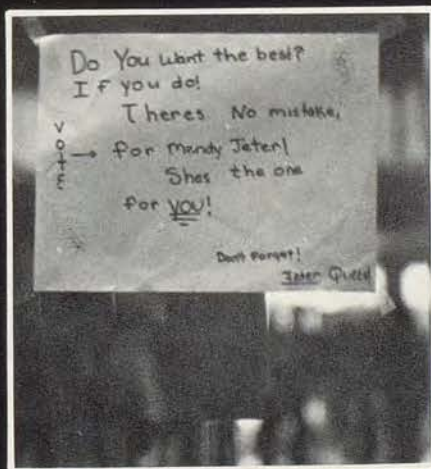 Do You want the best?
If you do!
Theres No mistake,
VOTE → for Mandy Jeter!
Shes the one
for YOU!
Don't Forget!
Jeter Queen